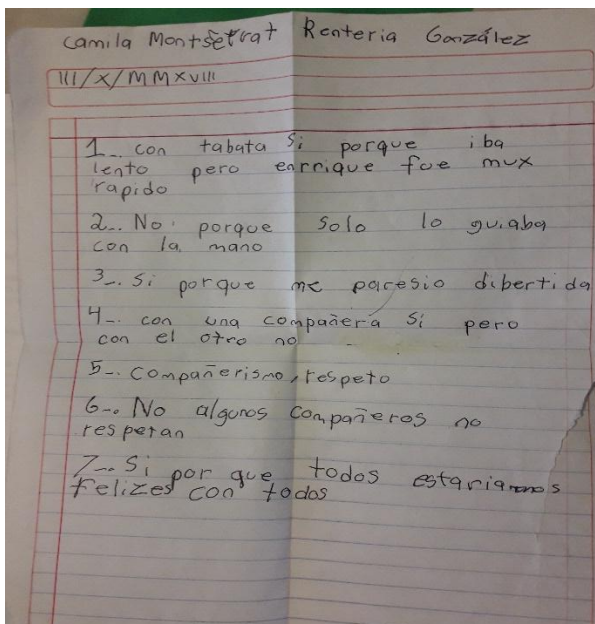 Camila Montserrat Renteria González
III/X/MMXVIII
1-. con tabata si porque iba
lento pero enrrique fue mux
rapido
2-. No porque solo lo guiaba
con la mano
3-. Si porque me paresio dibertida
4-. con una compañera si pero
con el otro no
5-. compañerismo, respeto
6-. No algunos compañeros no
respetan
7-. Si por que todos estariamos
felizes con todos